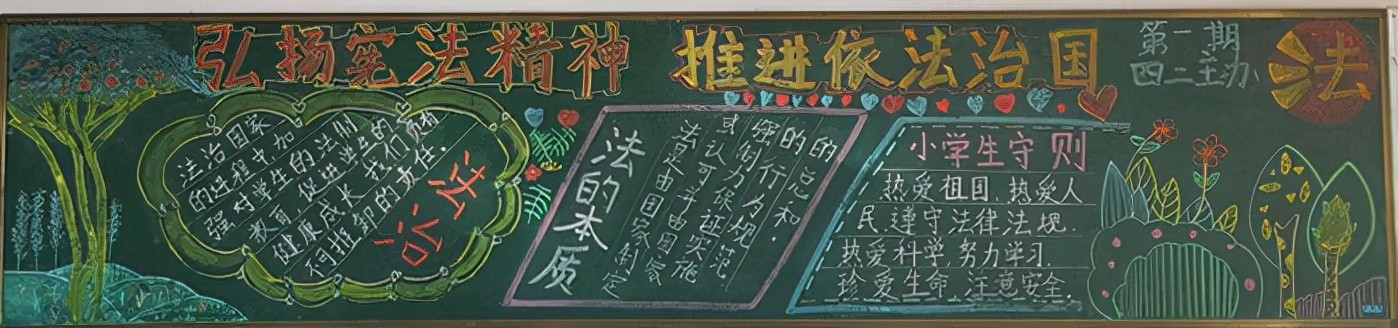 弘扬宪法精神 推进依法治国
第二期
四二主办
法
法治国家
的进程中,加
强对学生的法制
教育,促进学生的
健康成长,
推卸的责任.
法治
法的本质
法是由国家制定
或认可并由国家
强制力保证实施
的行为规范
的总和.
小学生守则
热爱祖国,热爱人
民,遵守法律法规.
热爱科学,努力学习.
珍爱生命,注意安全.